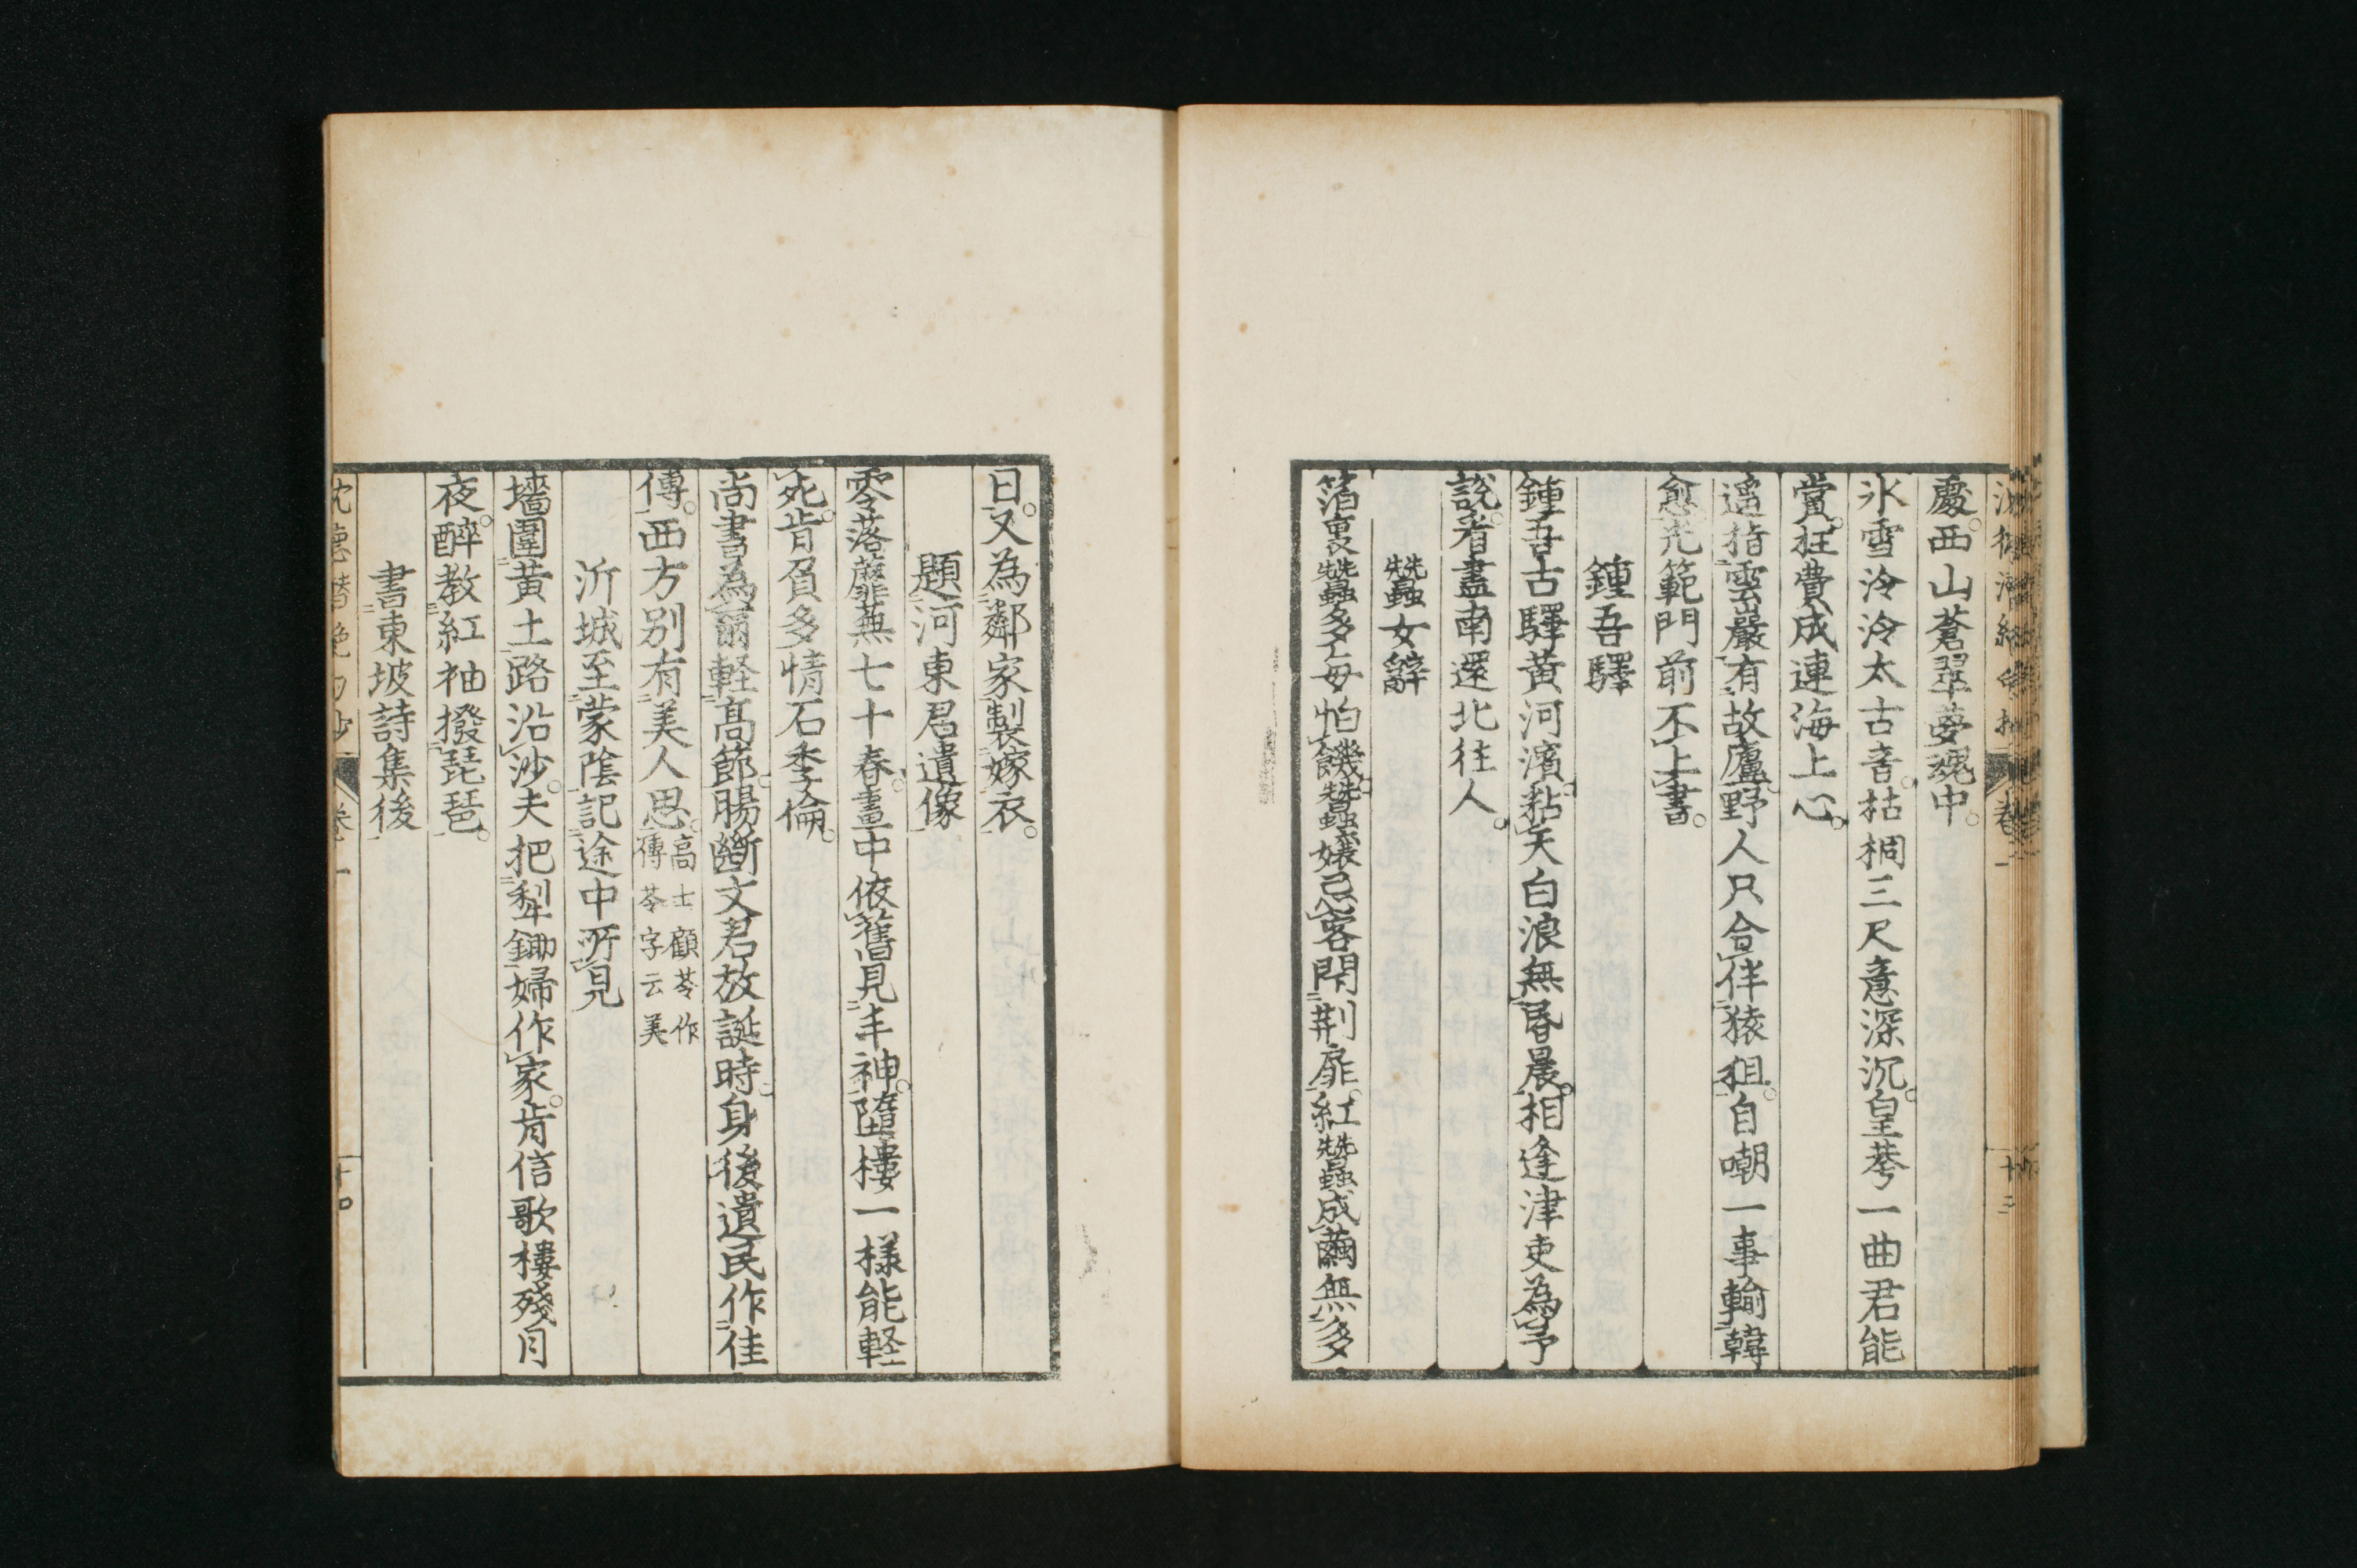 處西山蒼翠夢魂中
氷雪泠泠太古音枯桐三尺意深沉皇荂一曲君能
賞枉費成連海上心
遥指雲巖有故廬野人只合伴猿狙自嘲一事輸韓
愈光範門前不上書
鍾吾驛
鍾吾古驛黄河濱黏天白浪無昏晨相逢津吏為予
說看盡南還北往人
蠶女辭
箔裏蠶多每怕饑蠶房忌客閉荆扉紅蠶成繭無多
日又為鄰家製嫁衣
題河東君遺像
零落蘼蕪七十春畫中依舊見丰神墮樓一樣能輕
死肯負多情石季倫
尚書為爾軽髙節腸斷文君放誕時身後遺民作佳
傳西方別有美人思
高士顧苓作
傳苓字云美
沂城至蒙陰記途中所見
墻圍黄土路沿沙夫把犁鋤婦作家肯信歌樓殘月
夜醉教紅袖撥琵琶
書東坡詩集後
沈德潛絶句抄 卷一 十四